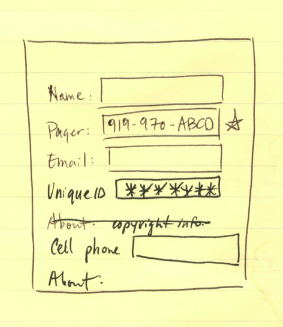 Name:
Pager: 919-970-ABCD ☆
Email:
Unique ID *******
About: copyright info.
Cell phone
About: